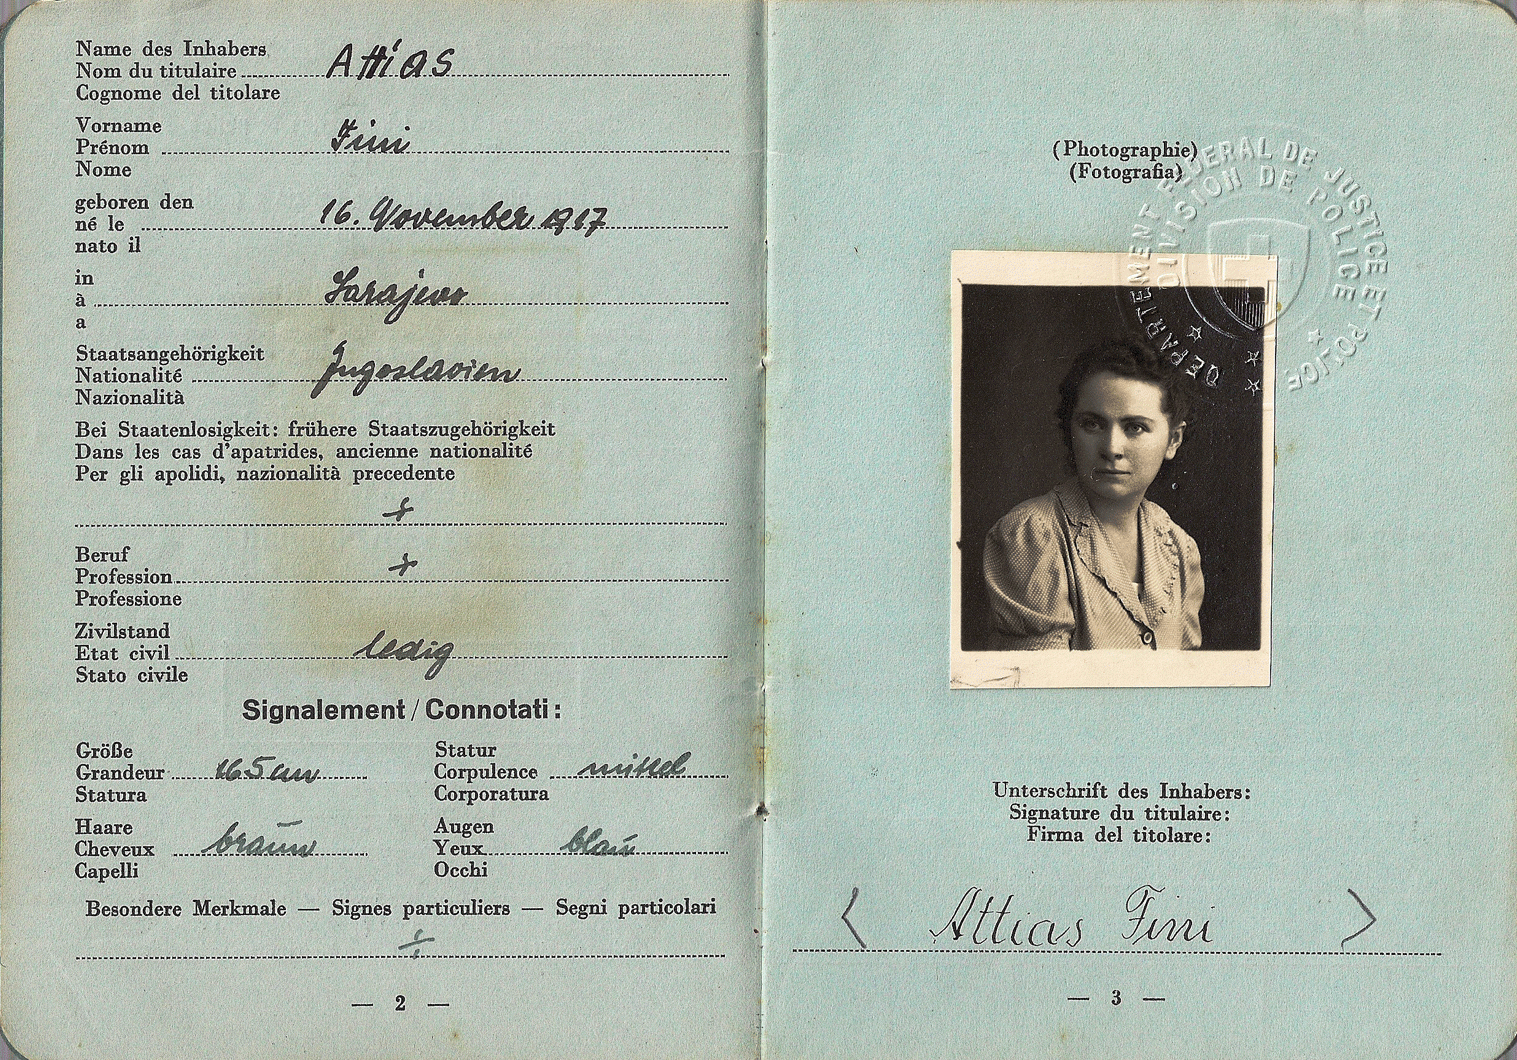 Name des Inhabers
Nom du titulaire Attias
Cognome del titolare
Vorname
Prénom Fini
Nome
geboren den
né le 16. November 1917
nato il
in
à Sarajevo
a
Staatsangehörigkeit
Nationalité Jugoslavien
Nazionalità
Bei Staatenlosigkeit: frühere Staatszugehörigkeit
Dans les cas d'apatrides, ancienne nationalité
Per gli apolidi, nazionalità precedente
Beruf
Profession
Professione
Zivilstand
Etat civil ledig
Stato civile
Signalement / Connotati:
Größe
Grandeur 165 cm
Statura
Statur
Corpulence mittel
Corporatura
Haare
Cheveux braun
Capelli
Augen
Yeux blau
Occhi
Besondere Merkmale — Signes particuliers — Segni particolari
— 2 —
(Photographie)
(Fotografia)
DEPARTEMENT FEDERAL DE JUSTICE ET POLICE
DIVISION DE POLICE
Unterschrift des Inhabers:
Signature du titulaire:
Firma del titolare:
Attias Fini
— 3 —